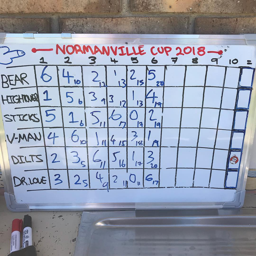 NORMANVILLE CUP 2018
1 2 3 4 5 6 7 8 9 10 =
BEAR 6 4 10 2 12 1 13 2 15 5 20
1 5 6 3 9 3 12 1 13 4
STICKS 5 1 6 5 11 6 17 0 2
V-MAN 4 6 10 1 11 4 15 3 1
DILTS 2 3 5 6 11 5 16 1 3
DR.LOVE 3 2 5 4 9 2 0 6